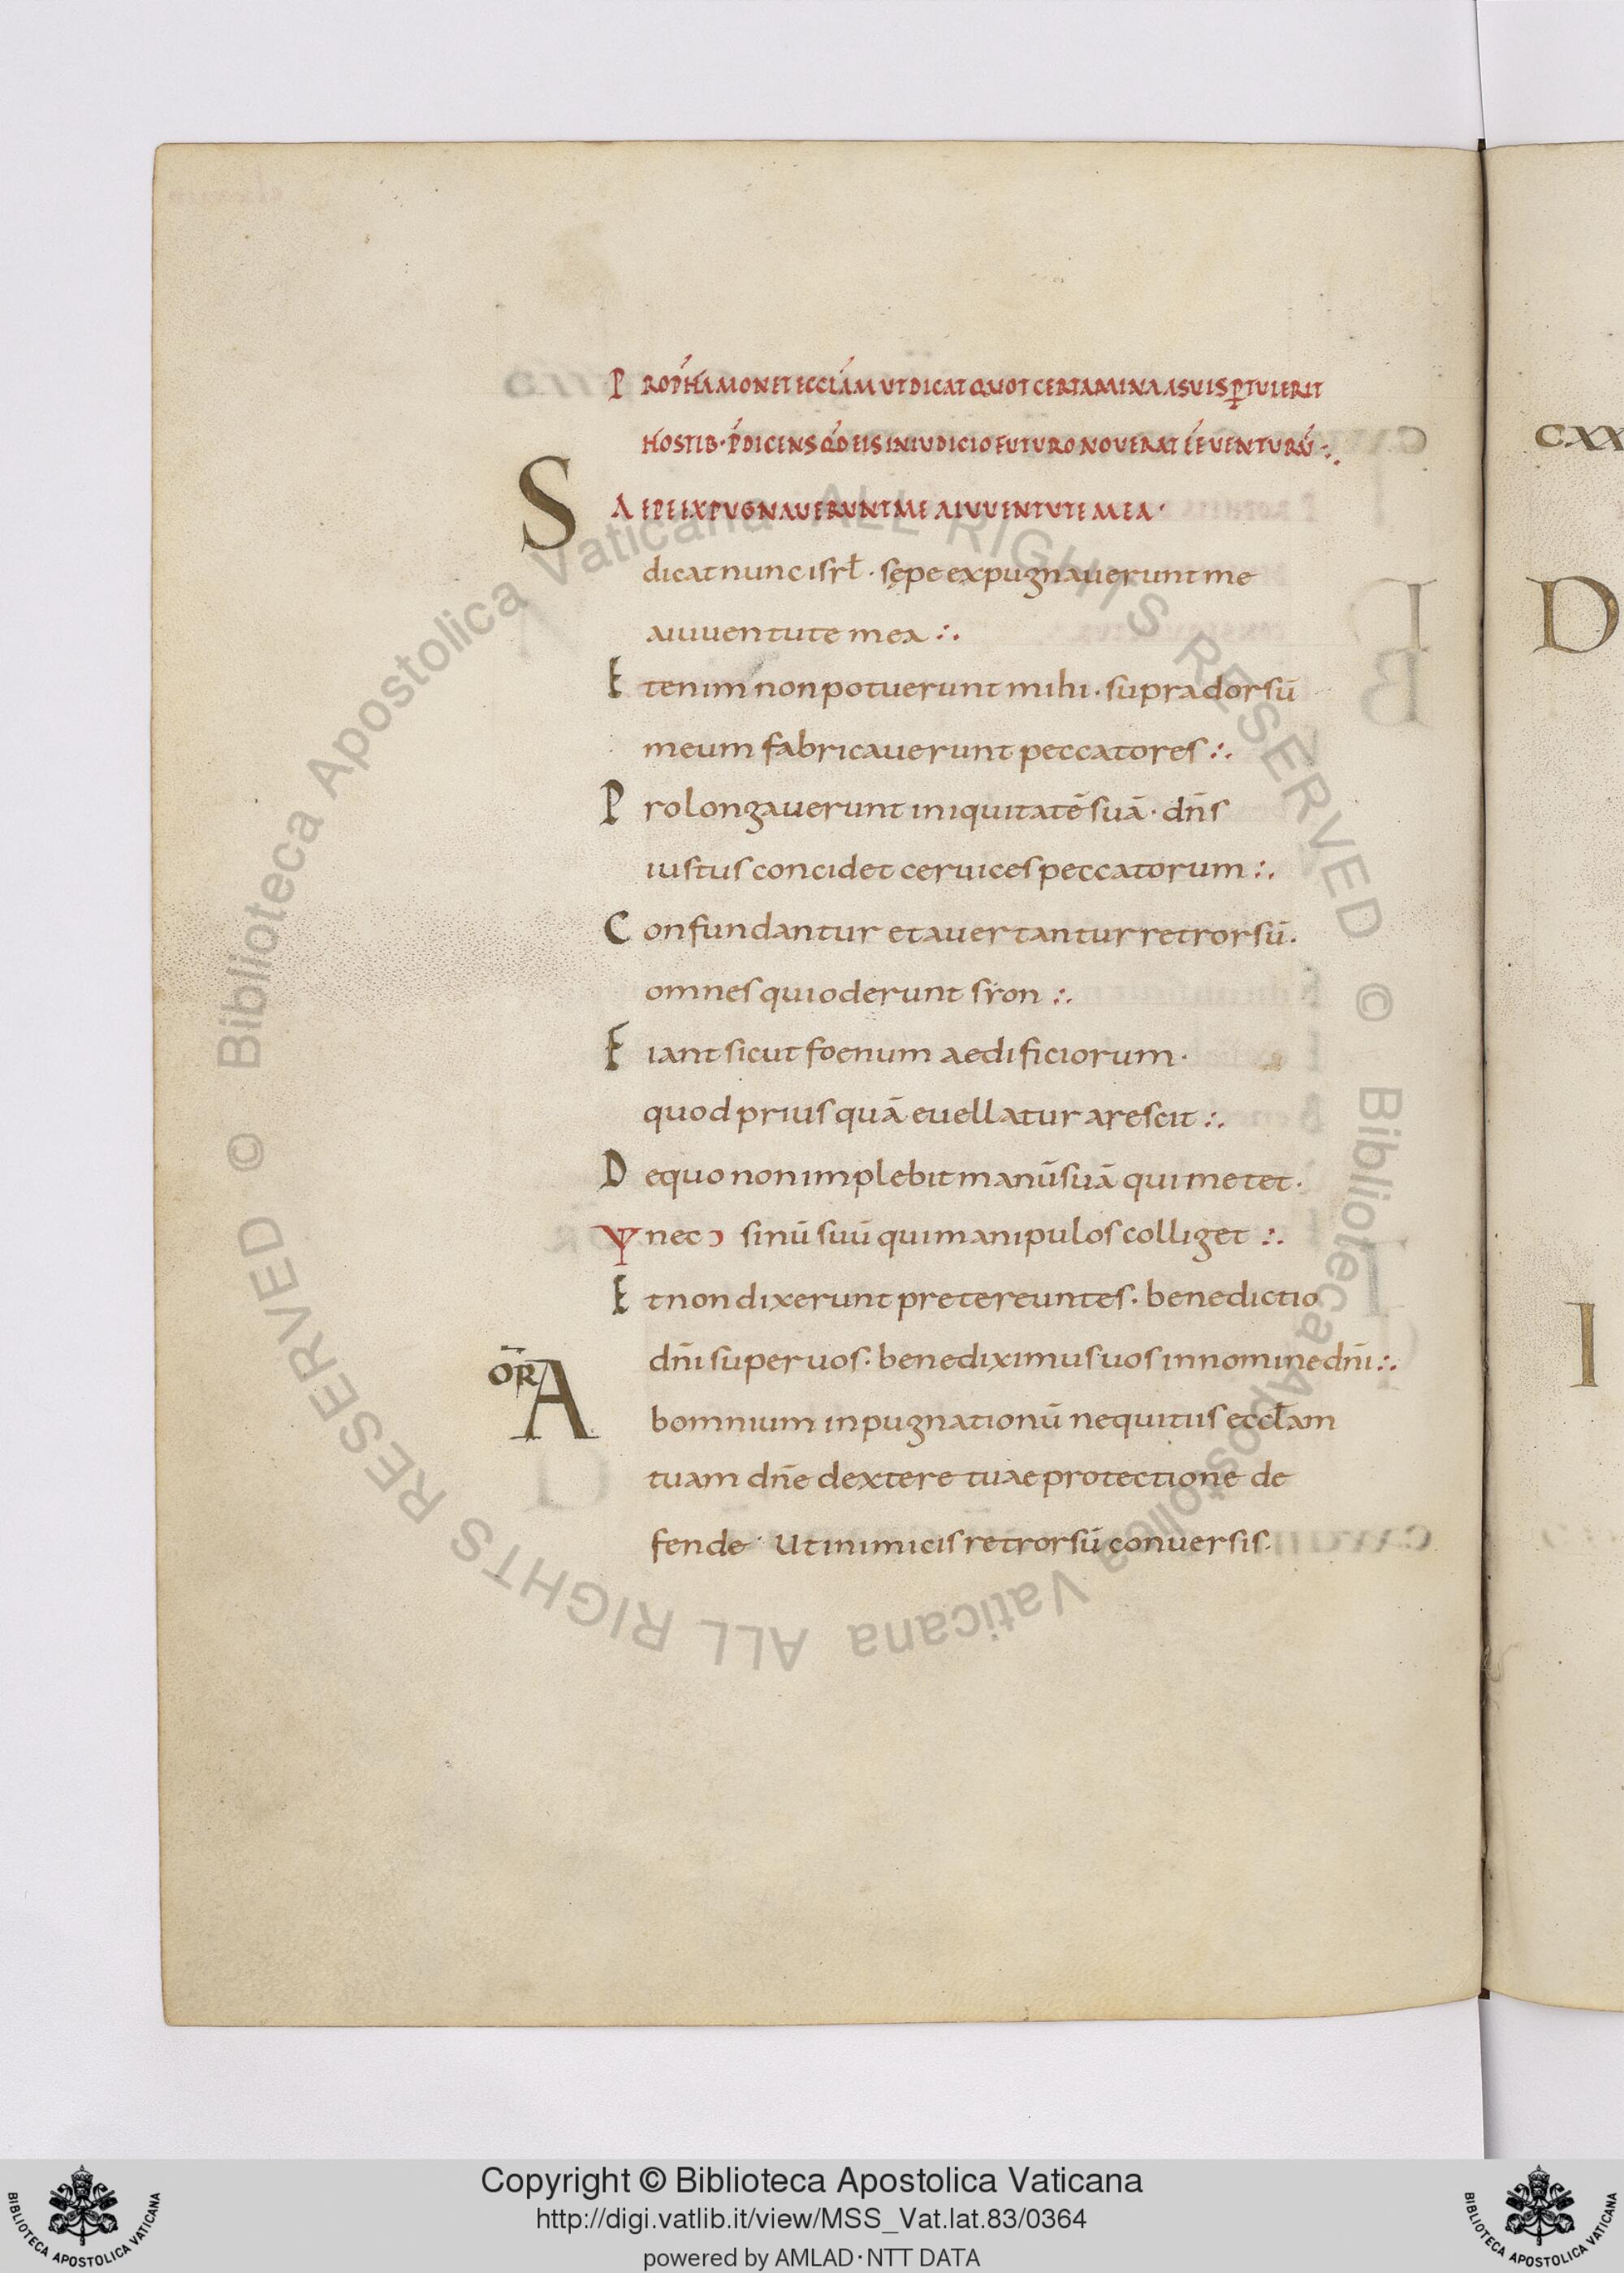 PROPHA MONET ECCLAM UT DICAT QUOT CERTAMINA A SUIS PTULERIT
HOSTIB· PDICENS QD EIS IN IUDICIO FUTURO NOUERAT EE UENTURU ∴
SAEPE EXPUGNAUERUNT ME A IUUENTUTE MEA·
dicat nunc isrł· sępe expugnauerunt me
a iuuentute mea ∴
Etenim non potuerunt mihi· supra dorsū
meum fabricauerunt peccatores ∴
Prolongauerunt iniquitatē suā· dn̄s
iustus concidet ceruices peccatorum ∴
Confundantur et auertantur retrorsū·
omnes qui oderunt syon ∴
Fiant sicut foenum aedificiorum·
quod prius quā euellatur arescit ∴
De quo non implebit manū suā qui metet·
nec sinū suū qui manipulos colliget ∴
Et non dixerunt pretereuntes· benedictio
dn̄i super uos· benediximus uos in nomine dn̄i ∴
OR̄ Ab omnium inpugnationū nequitiis eccłam
tuam dn̄e dextere tuae protectione de
fende· Ut inimicis retrorsū conuersis·
CXX
D
I
© Biblioteca Apostolica Vaticana ALL RIGHTS RESERVED © Biblioteca Apostolica Vaticana ALL RIGHTS RESERVED
Copyright © Biblioteca Apostolica Vaticana
http://digi.vatlib.it/view/MSS_Vat.lat.83/0364
powered by AMLAD·NTT DATA
BIBLIOTECA APOSTOLICA VATICANA
BIBLIOTECA APOSTOLICA VATICANA